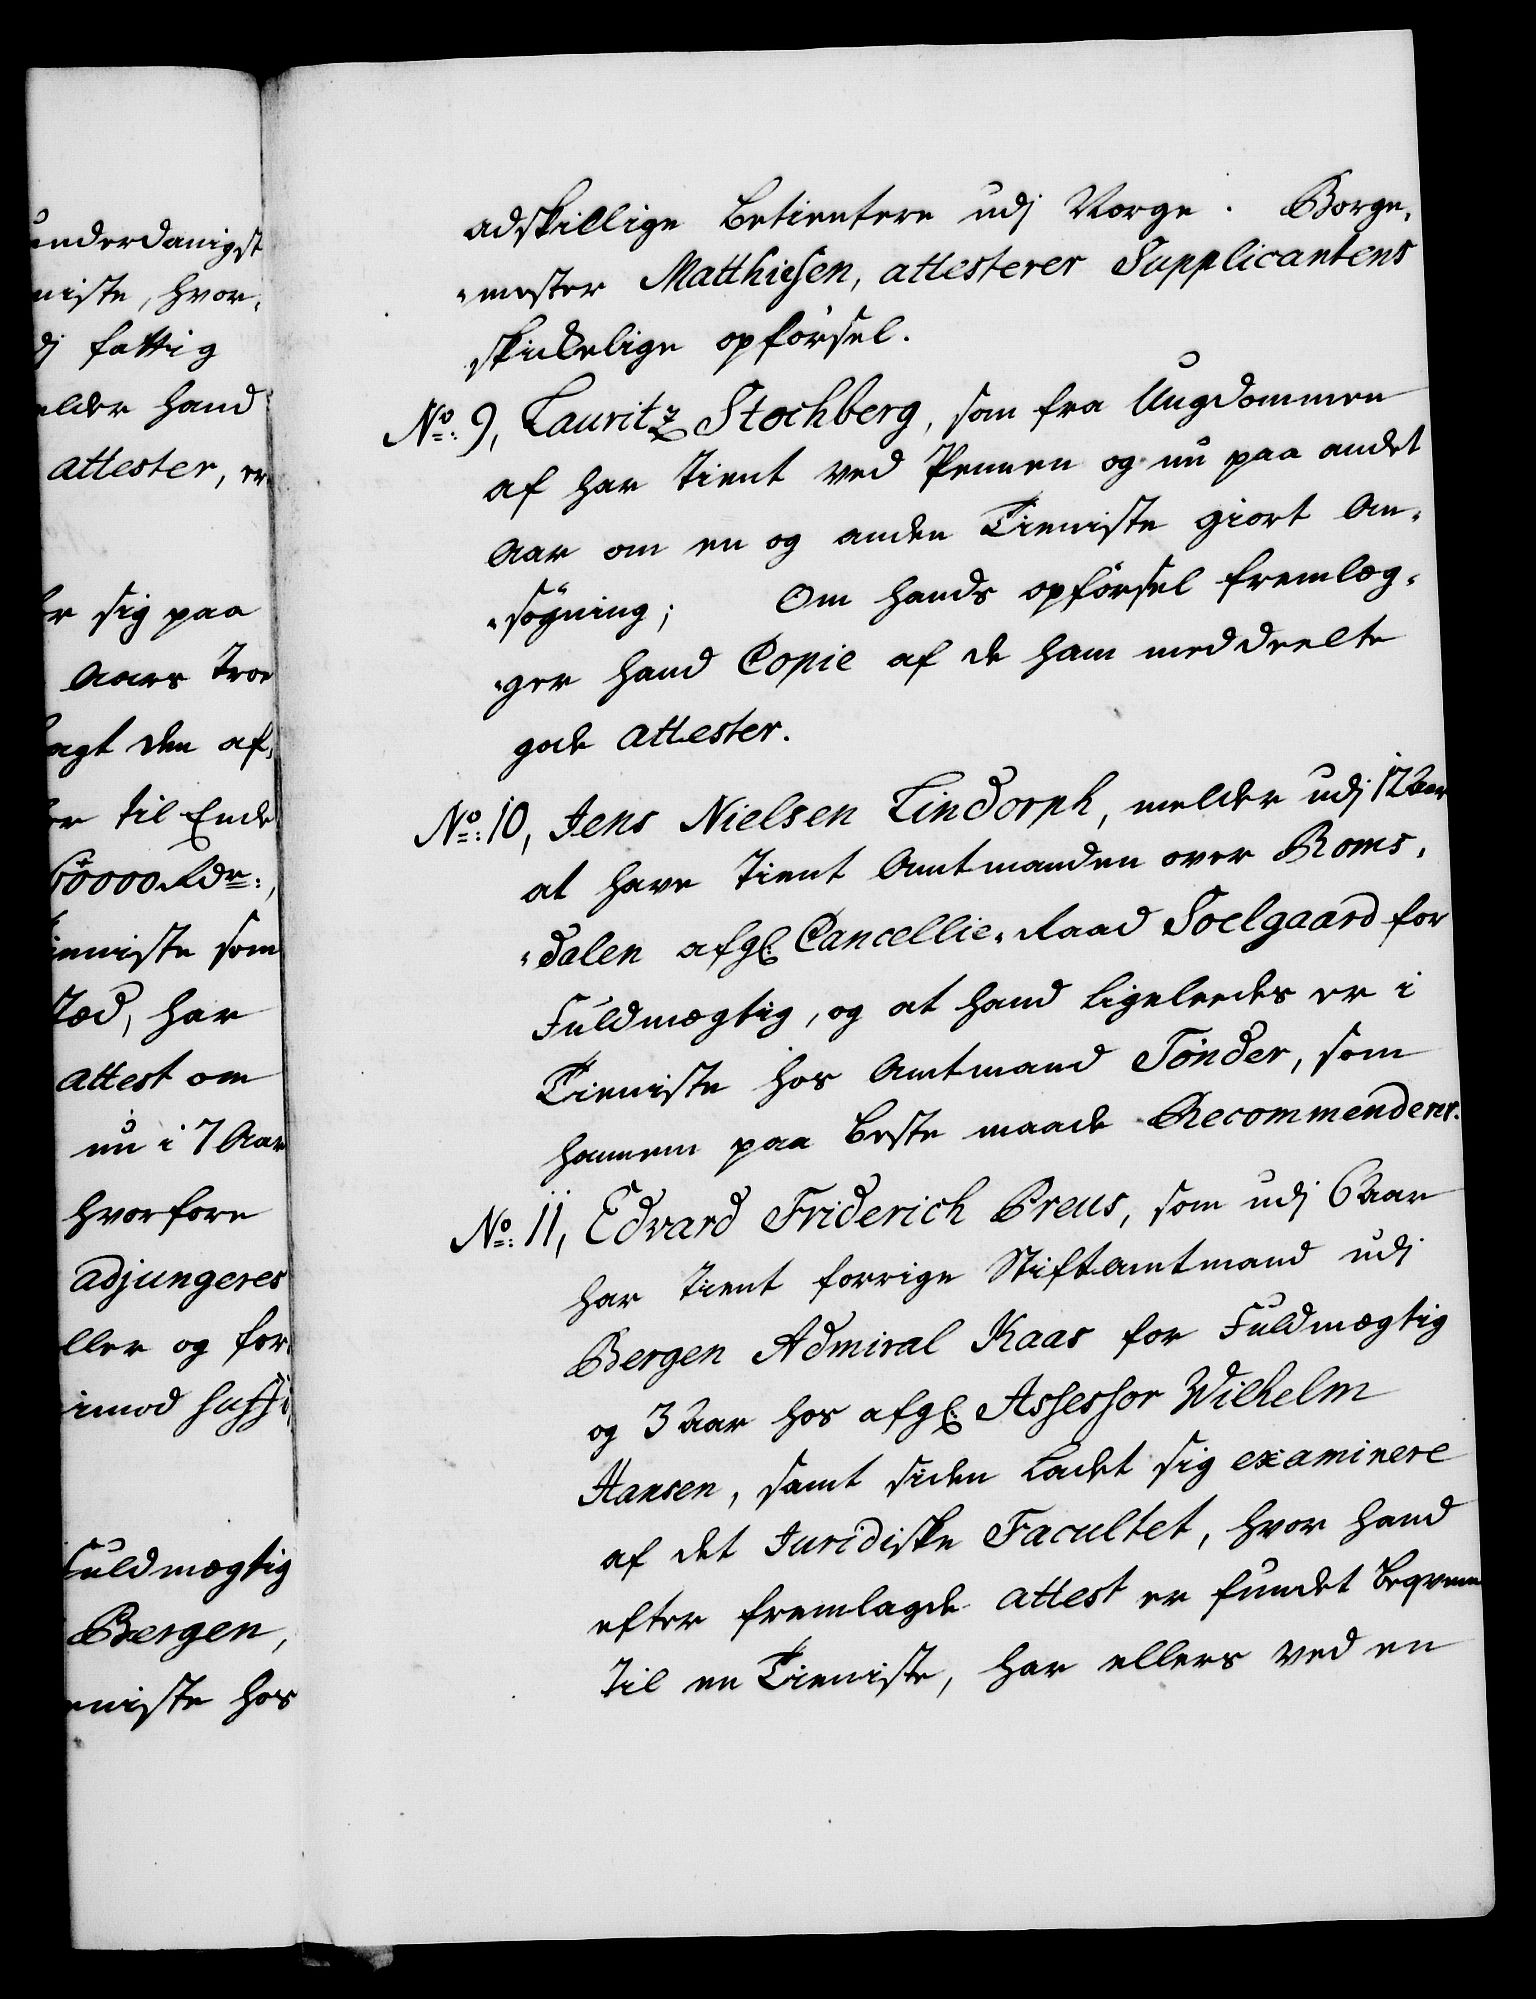 underdanigst
niste, hvor-
dj fattig
elder hand
attester, er
er sig paa
Aars Troe
agt den af-
er til Ende
60000 Rdr:,
ieniste som
Sted, har
attest om
nu i 7 Aar
hvorfore
adjungeres
ller og for
imod
Fuldmægtig
Bergen,
eniste hos
adskillige Betientere udj Norge. Borge-
-mester Matthiesen, attesterer Supplicantens
skikkelige opførsel.
No: 9, Lauritz Stochberg, som fra Ungdommen
af har tient ved Pennen og nu paa andet
Aar om en og anden Tieniste giort An-
-søgning; Om hands opførsel fremlæg-
-ger hand Copie af de ham meddeelte
gode attester.
No: 10, Jens Nielsen Lindorph, melder udj 12 Aar
at have tient Amtmanden over Roms-
-dalen afgl: Cancellie-Raad Soelgaard for
Fuldmægtig, og at hand ligeleedes er i
Tieniste hos Amtmand Tønder, som
hannem paa beste maade Recommenderer.
No: 11, Edvard Friderich Preus, som udj 6 Aar
har tient forrige Stiftamtmand udj
Bergen Admiral Kaas for Fuldmægtig
og 3 Aar hos afgl: Assessor Wilhelm
Hansen, samt siden ladet sig examinere
af det Juridiske Facultet, hvor hand
efter fremlagde attest er fundet beqvem
til en Tieniste, har ellers ved en